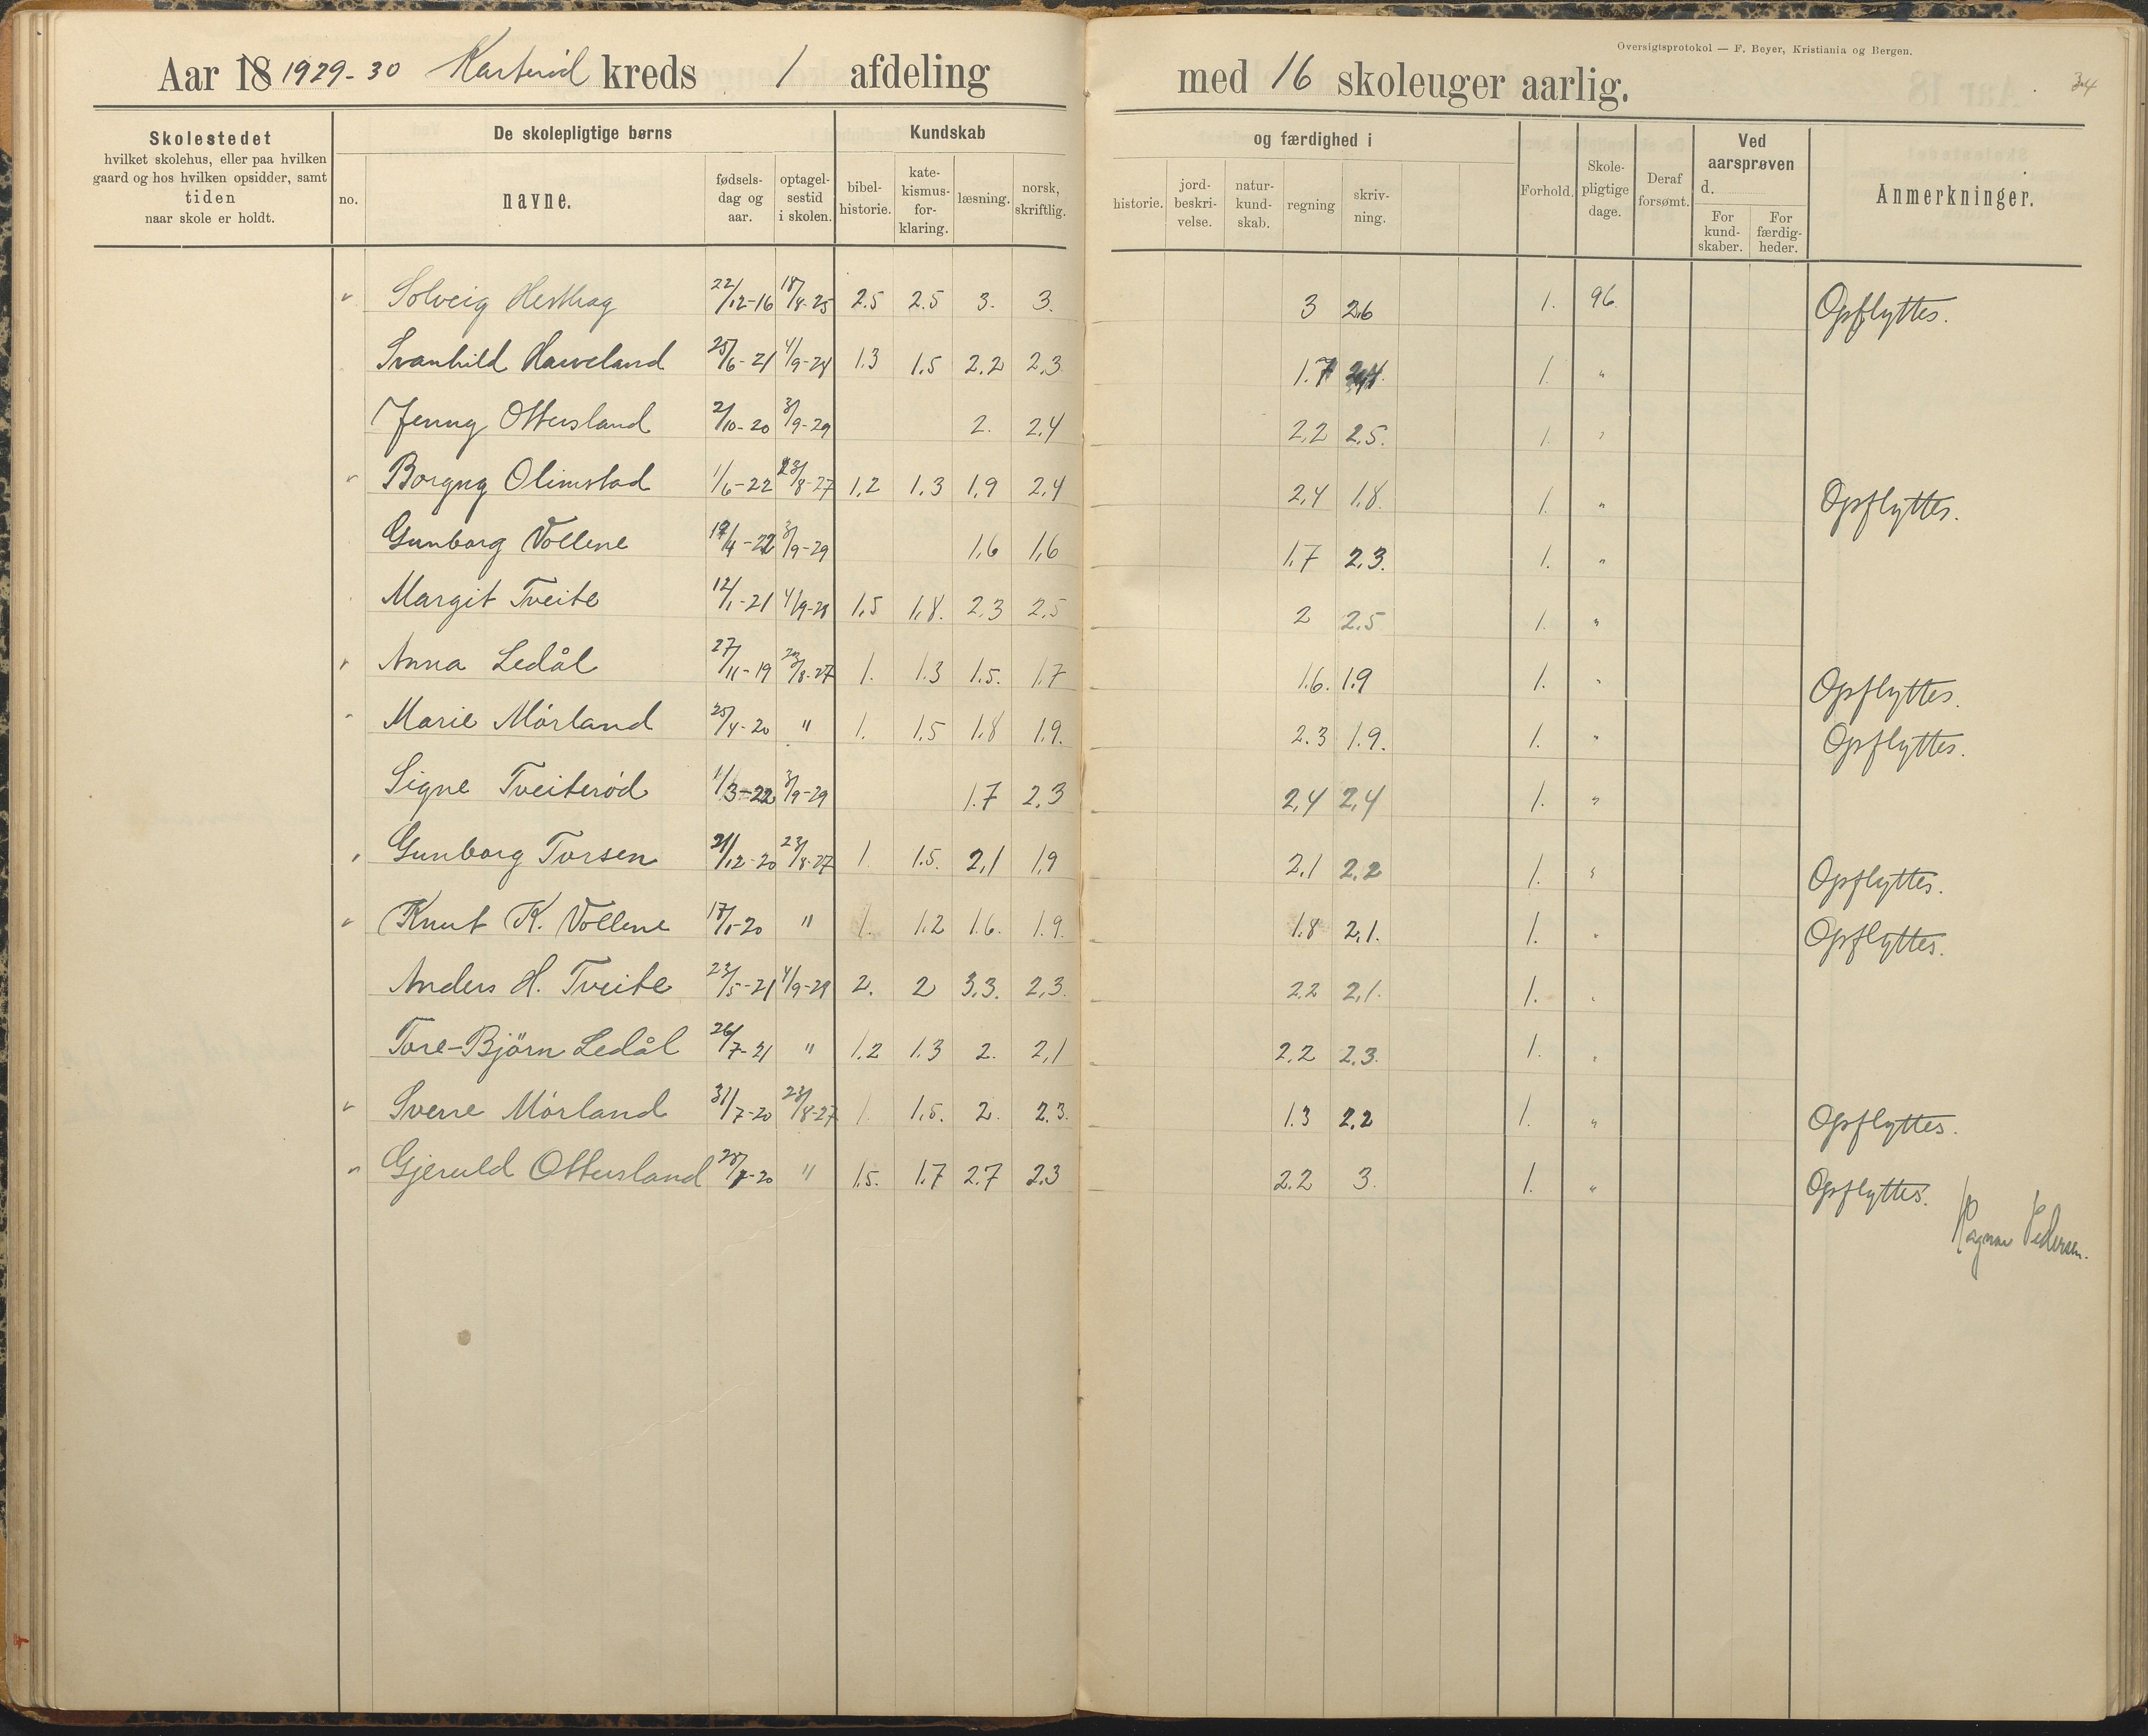 Oversigtsprotokol — F. Beyer, Kristiania og Bergen.
Aar 18 1929-30 Karterød kreds 1 afdeling med 16 skoleuger aarlig. 34
Skolestedet
hvilket skolehus, eller paa hvilken
gaard og hos hvilken opsidder, samt
tiden
naar skole er holdt.
De skolepligtige børns
no.
navne.
fødsels-
dag og
aar.
optagel-
sestid
i skolen.
Kundskab
bibel-
historie.
kate-
kismus-
for-
klaring.
læsning.
norsk,
skriftlig.
og færdighed i
historie.
jord-
beskri-
velse.
natur-
kund-
skab.
regning
skriv-
ning.
Forhold.
Skole-
pligtige
dage.
Deraf
forsømt.
Ved
aarsprøven
d.
For
kund-
skaber.
For
færdig-
heder.
Anmerkninger.
Solveig 22/12-16 18/8-25 2.5 2.5 3. 3. 3 2.6 1. 96 Opflyttes.
Svanhild Haveland 25/6-21 4/9-28 1.3 1.5 2.2 2.3 1.7 1. "
Jenny Ottersland 2/10-20 3/9-29 2. 2.4 2.2 2.5. 1. "
Borgny Olimstad 1/6-22 23/8-27 1.2 1.3 1.9 2.4 2.4 1.8. 1. " Opflyttes.
Gunborg Vollene 19/4-22 3/9-29 1.6 1.6 1.7 2.3. 1. "
Margit Tveite 12/1-21 4/9-28 1.5 1.8. 2.3 2.5 2 2.5 1. "
Anna Ledål 27/11-19 23/8-27 1. 1.3 1.5. 1.7 1.6. 1.9 1. " Opflyttes.
Marie Mørland 25/4-20 " 1. 1.5 1.8 1.9. 2.3 1.9. 1. " Opflyttes.
Signe Tveiterød 1/3-22 3/9-29 1.7 2.3 2.4 2.4 1. "
Gunborg Torsen 21/12-20 23/8-27 1 1.5. 2.1 1.9 2.1 2.2 1. " Opflyttes.
Knut K. Vollene 17/1-20 " 1. 1.2 1.6. 1.9. 1.8 2.1. 1. " Opflyttes.
Anders H. Tveite 23/5-21 4/9-29 2. 2 3.3. 2.3. 2.2 2.1. 1. "
Tore-Bjørn Ledål 26/7-21 " 1.2 1.3 2. 2.1 2.2 2.3. 1. "
Sverre Mørland 31/7-20 23/8-27 1. 1.5. 2. 2.3. 1.3 2.2 1. " Opflyttes.
Gjeruld Ottersland 28/7-20 " 1.5. 1.7 2.7 2.3 2.2 3. 1. " Opflyttes.
Ragnar Pedersen.